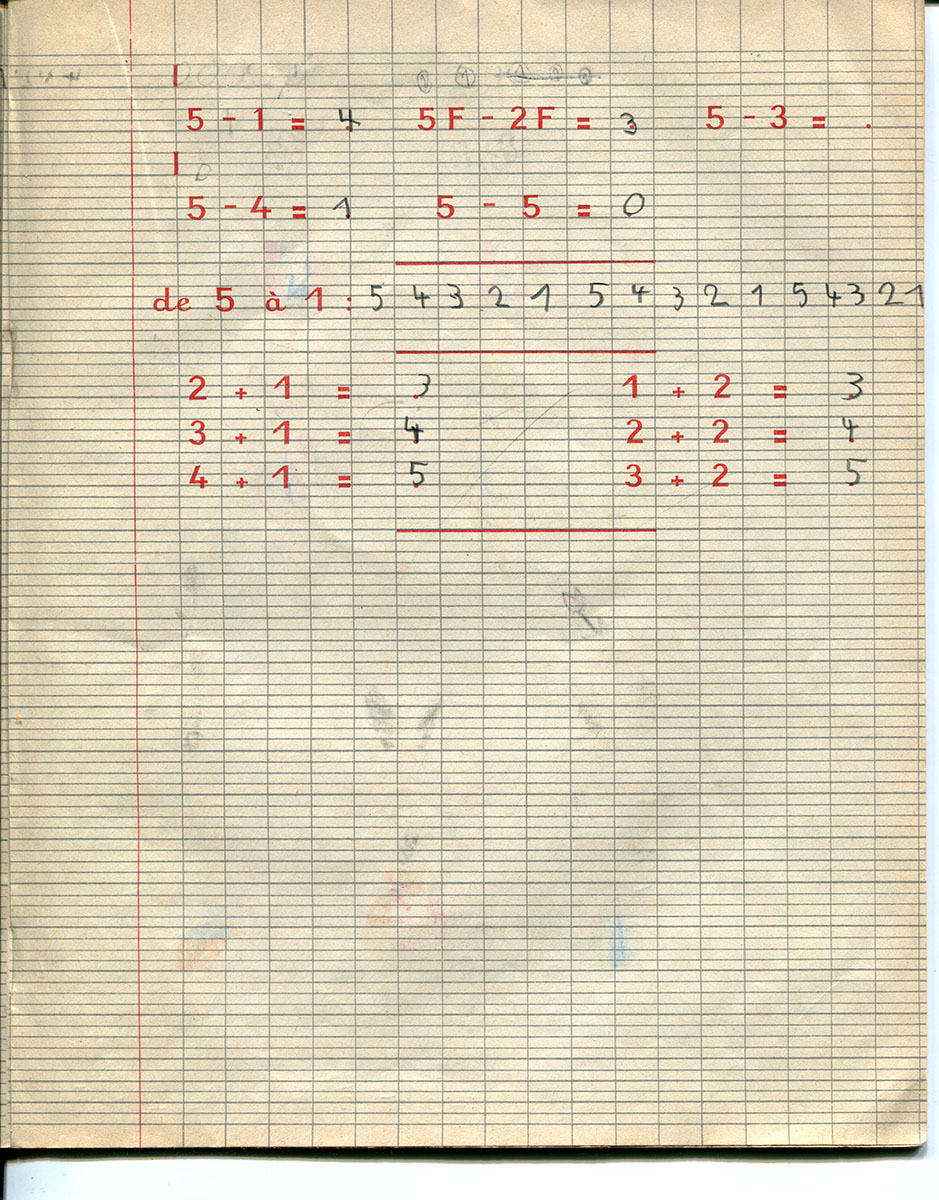 5 - 1 = 4 5F - 2F = 3 5 - 3 = .
5 - 4 = 1 5 - 5 = 0
de 5 à 1 : 5 4 3 2 1 5 4 3 2 1 5 4 3 2 1
2 + 1 = 3 1 + 2 = 3
3 + 1 = 4 2 + 2 = 4
4 + 1 = 5 3 + 2 = 5